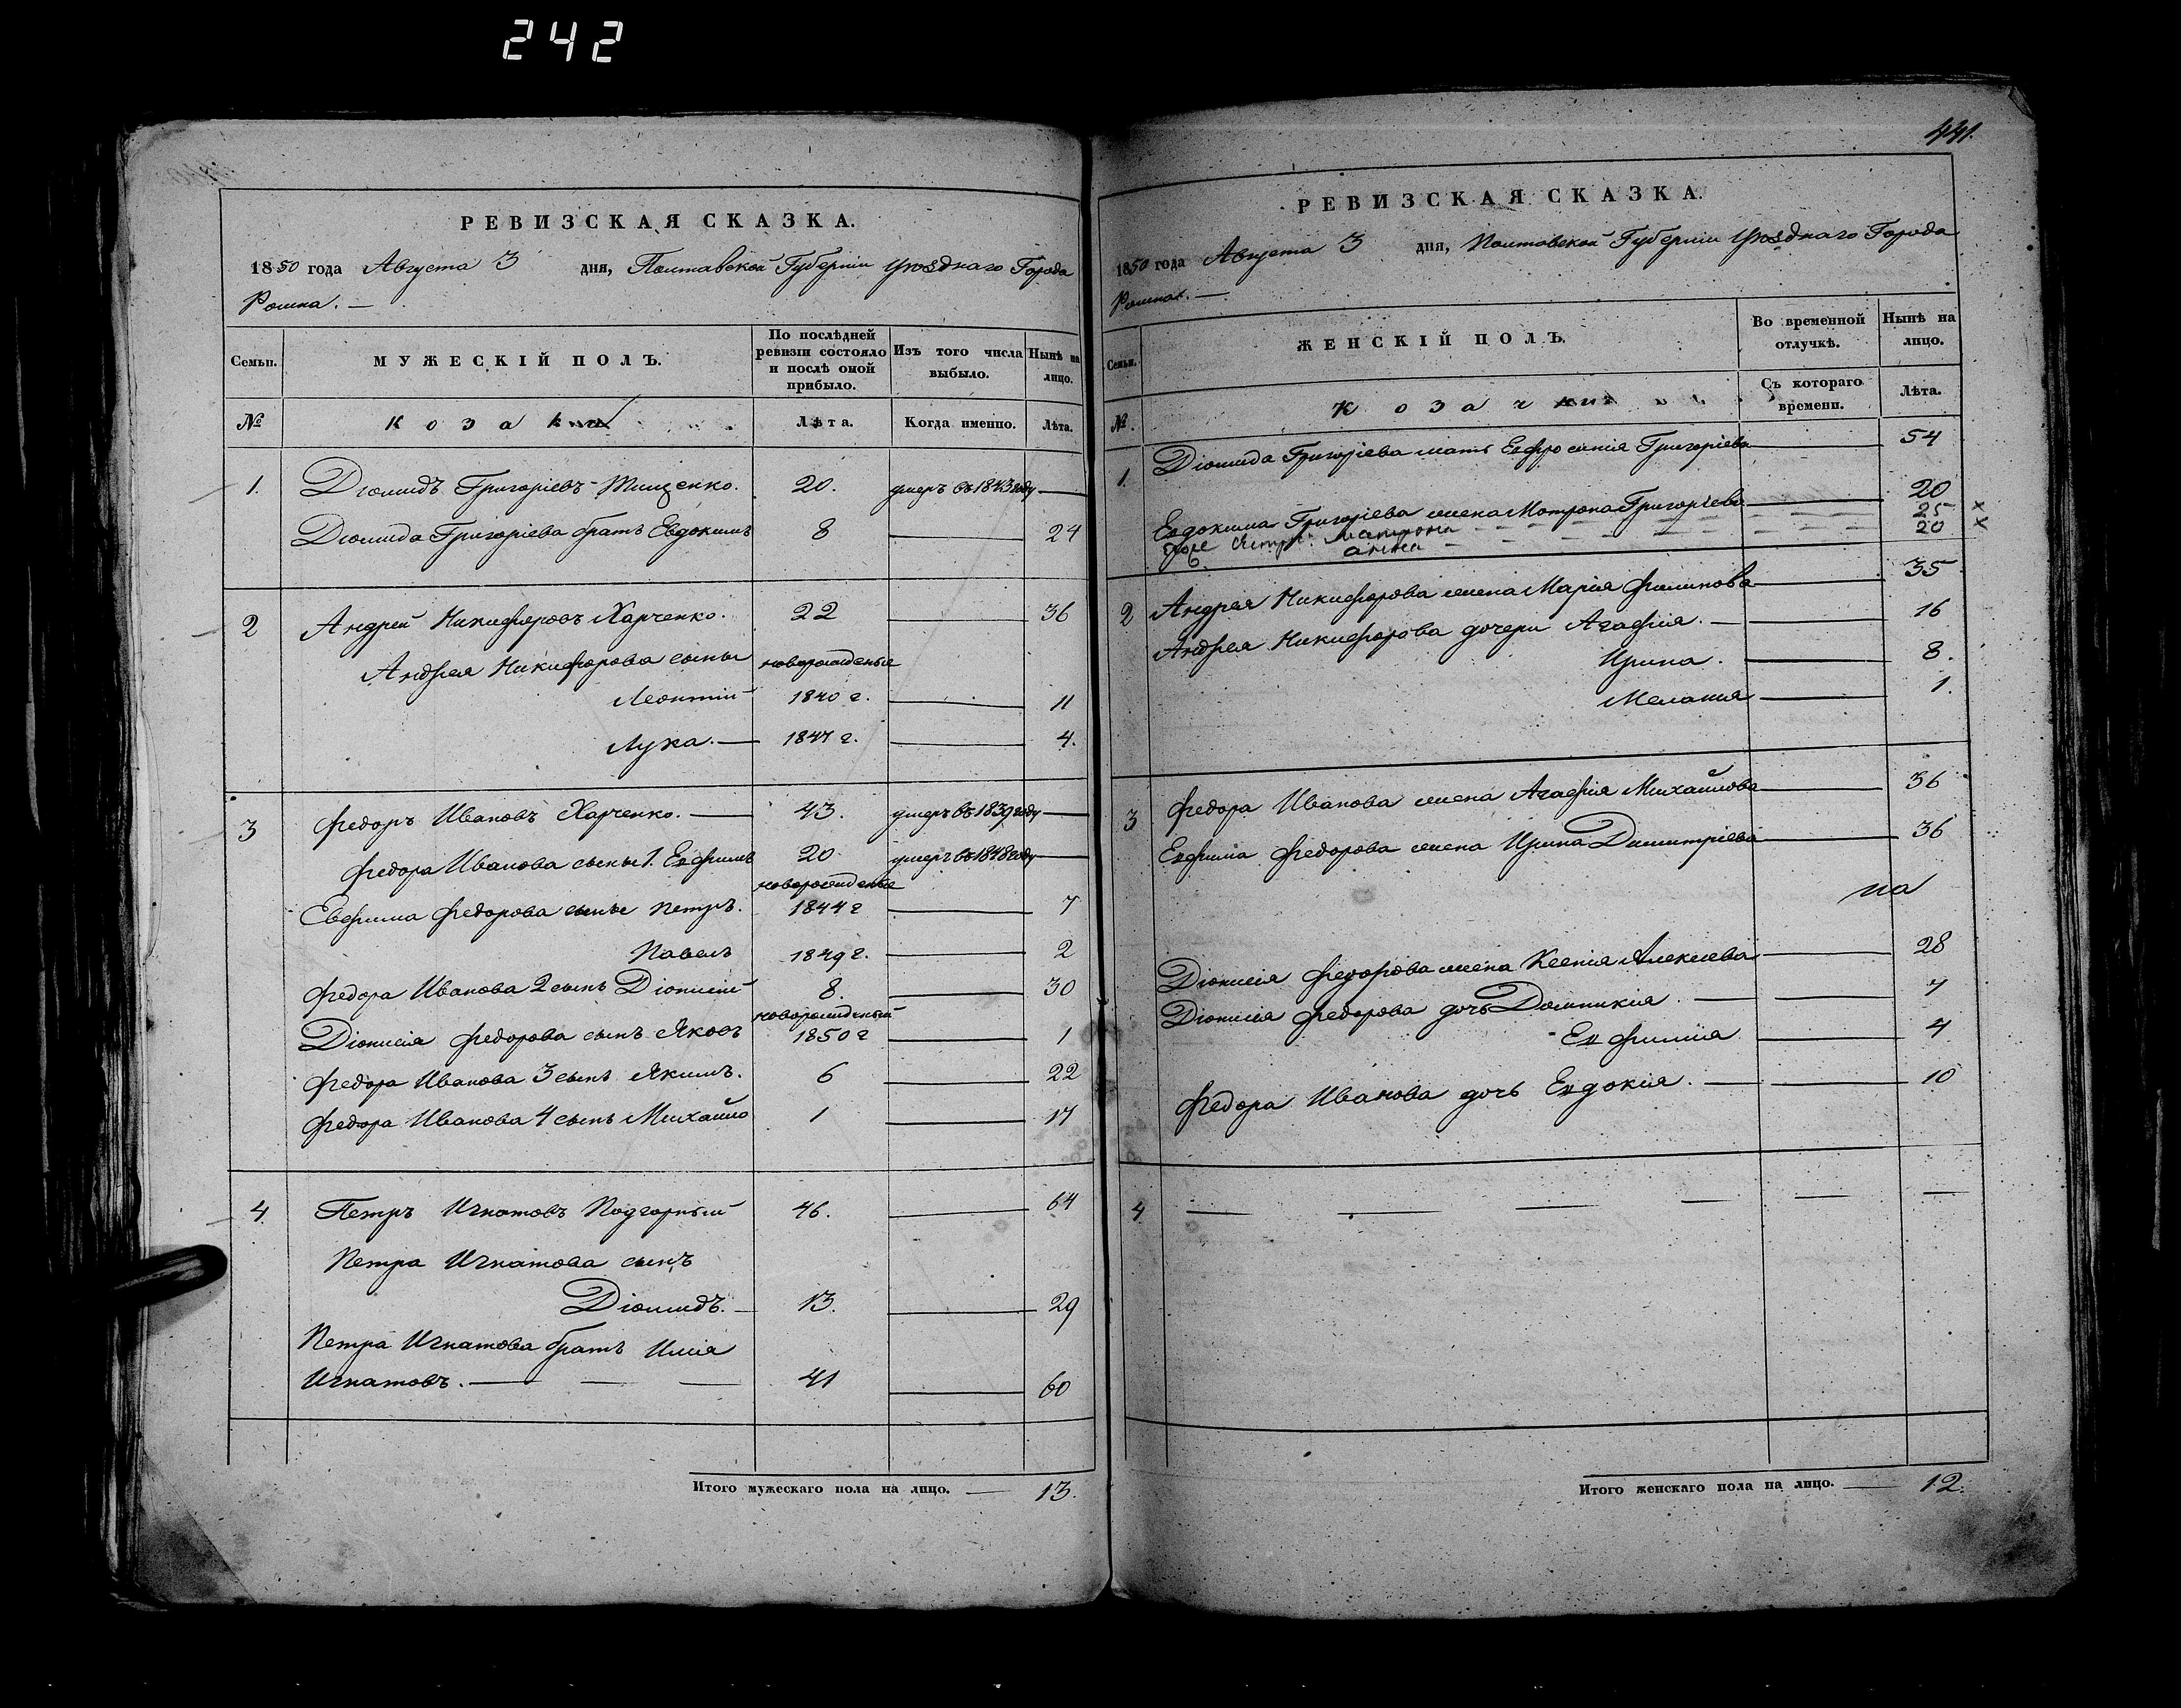 242
РЕВИЗСКАЯ СКАЗКА.
1850 года Августа 3 дня, Полтавской Губернии Уѣзднаго Города
Ромна. —
Семьи.
МУЖЕСКІЙ ПОЛЪ.
По послѣдней ревизіи состояло и послѣ оной прибыло.
Изъ того числа выбыло.
Нынѣ на лицо.
№
Козаки
Лѣта.
Когда именно.
Лѣта.
1. Діомидъ Григоріевъ Тищенко. 20. умеръ въ 1843 году —
Діомида Григоріева братъ Евдокимъ 8 — 24
2 Андрей Никифоровъ Харченко. 22 — 36
Андрея Никифорова сыны новорожденые
Леонтій 1840 г. — 11
Лука. — 1847 г. — 4.
3 Федоръ Ивановъ Харченко. — 43. умеръ въ 1839 году —
Федора Иванова сыны 1. Евфимъ 20 умеръ въ 1848 году —
новорожденые
Евфима Федорова сыны Петръ. 1844 г — 7
Павелъ 1849 г. — 2
Федора Иванова 2 сынъ Діонисій 8. — 30
новорожденый
Діонисія Федорова сынъ Яковъ 1850 г — 1
Федора Иванова 3 сынъ Якимъ. 6 — 22
Федора Иванова 4 сынъ Михайло 1 — 17
4. Петръ Игнатовъ Подгорный 46. — 64
Петра Игнатова сынъ
Діомидъ. — 13. — 29
Петра Игнатова братъ Илія
Игнатовъ. — — — 41 — 60
Итого мужескаго пола на лицо. — 13.
441.
РЕВИЗСКАЯ СКАЗКА.
1850 года Августа 3 дня, Полтавской Губерніи Уѣзднаго Города
Ромна. —
Семьи.
ЖЕНСКІЙ ПОЛЪ.
Во временной отлучкѣ.
Нынѣ на лицо.
№.
Козачки
Съ котораго времени.
Лѣта.
1. Діомида Григоріева мать Евфросинія Григоріева — 54
Евдокима Григоріева жена Мотрона Григоріева — 20
Матрона 25
Анна 20
2 Андрея Никифорова жена Марія Филипова — 35
Андрея Никифорова дочери Агафія. — 16
Ирина. — 8.
Меланія — 1.
3 Федора Иванова жена Агафія Михайлова — 36
Евфима Федорова жена Ирина Димитріева — 36
на
Діонисія Федорова жена Ксенія Алексіева — 28
Діонисія Федорова дочь Домникія. — 7
Евфимія — 4
Федора Иванова дочь Евдокія. — 10
4. — — — — — —
Итого женскаго пола на лицо. — 12.